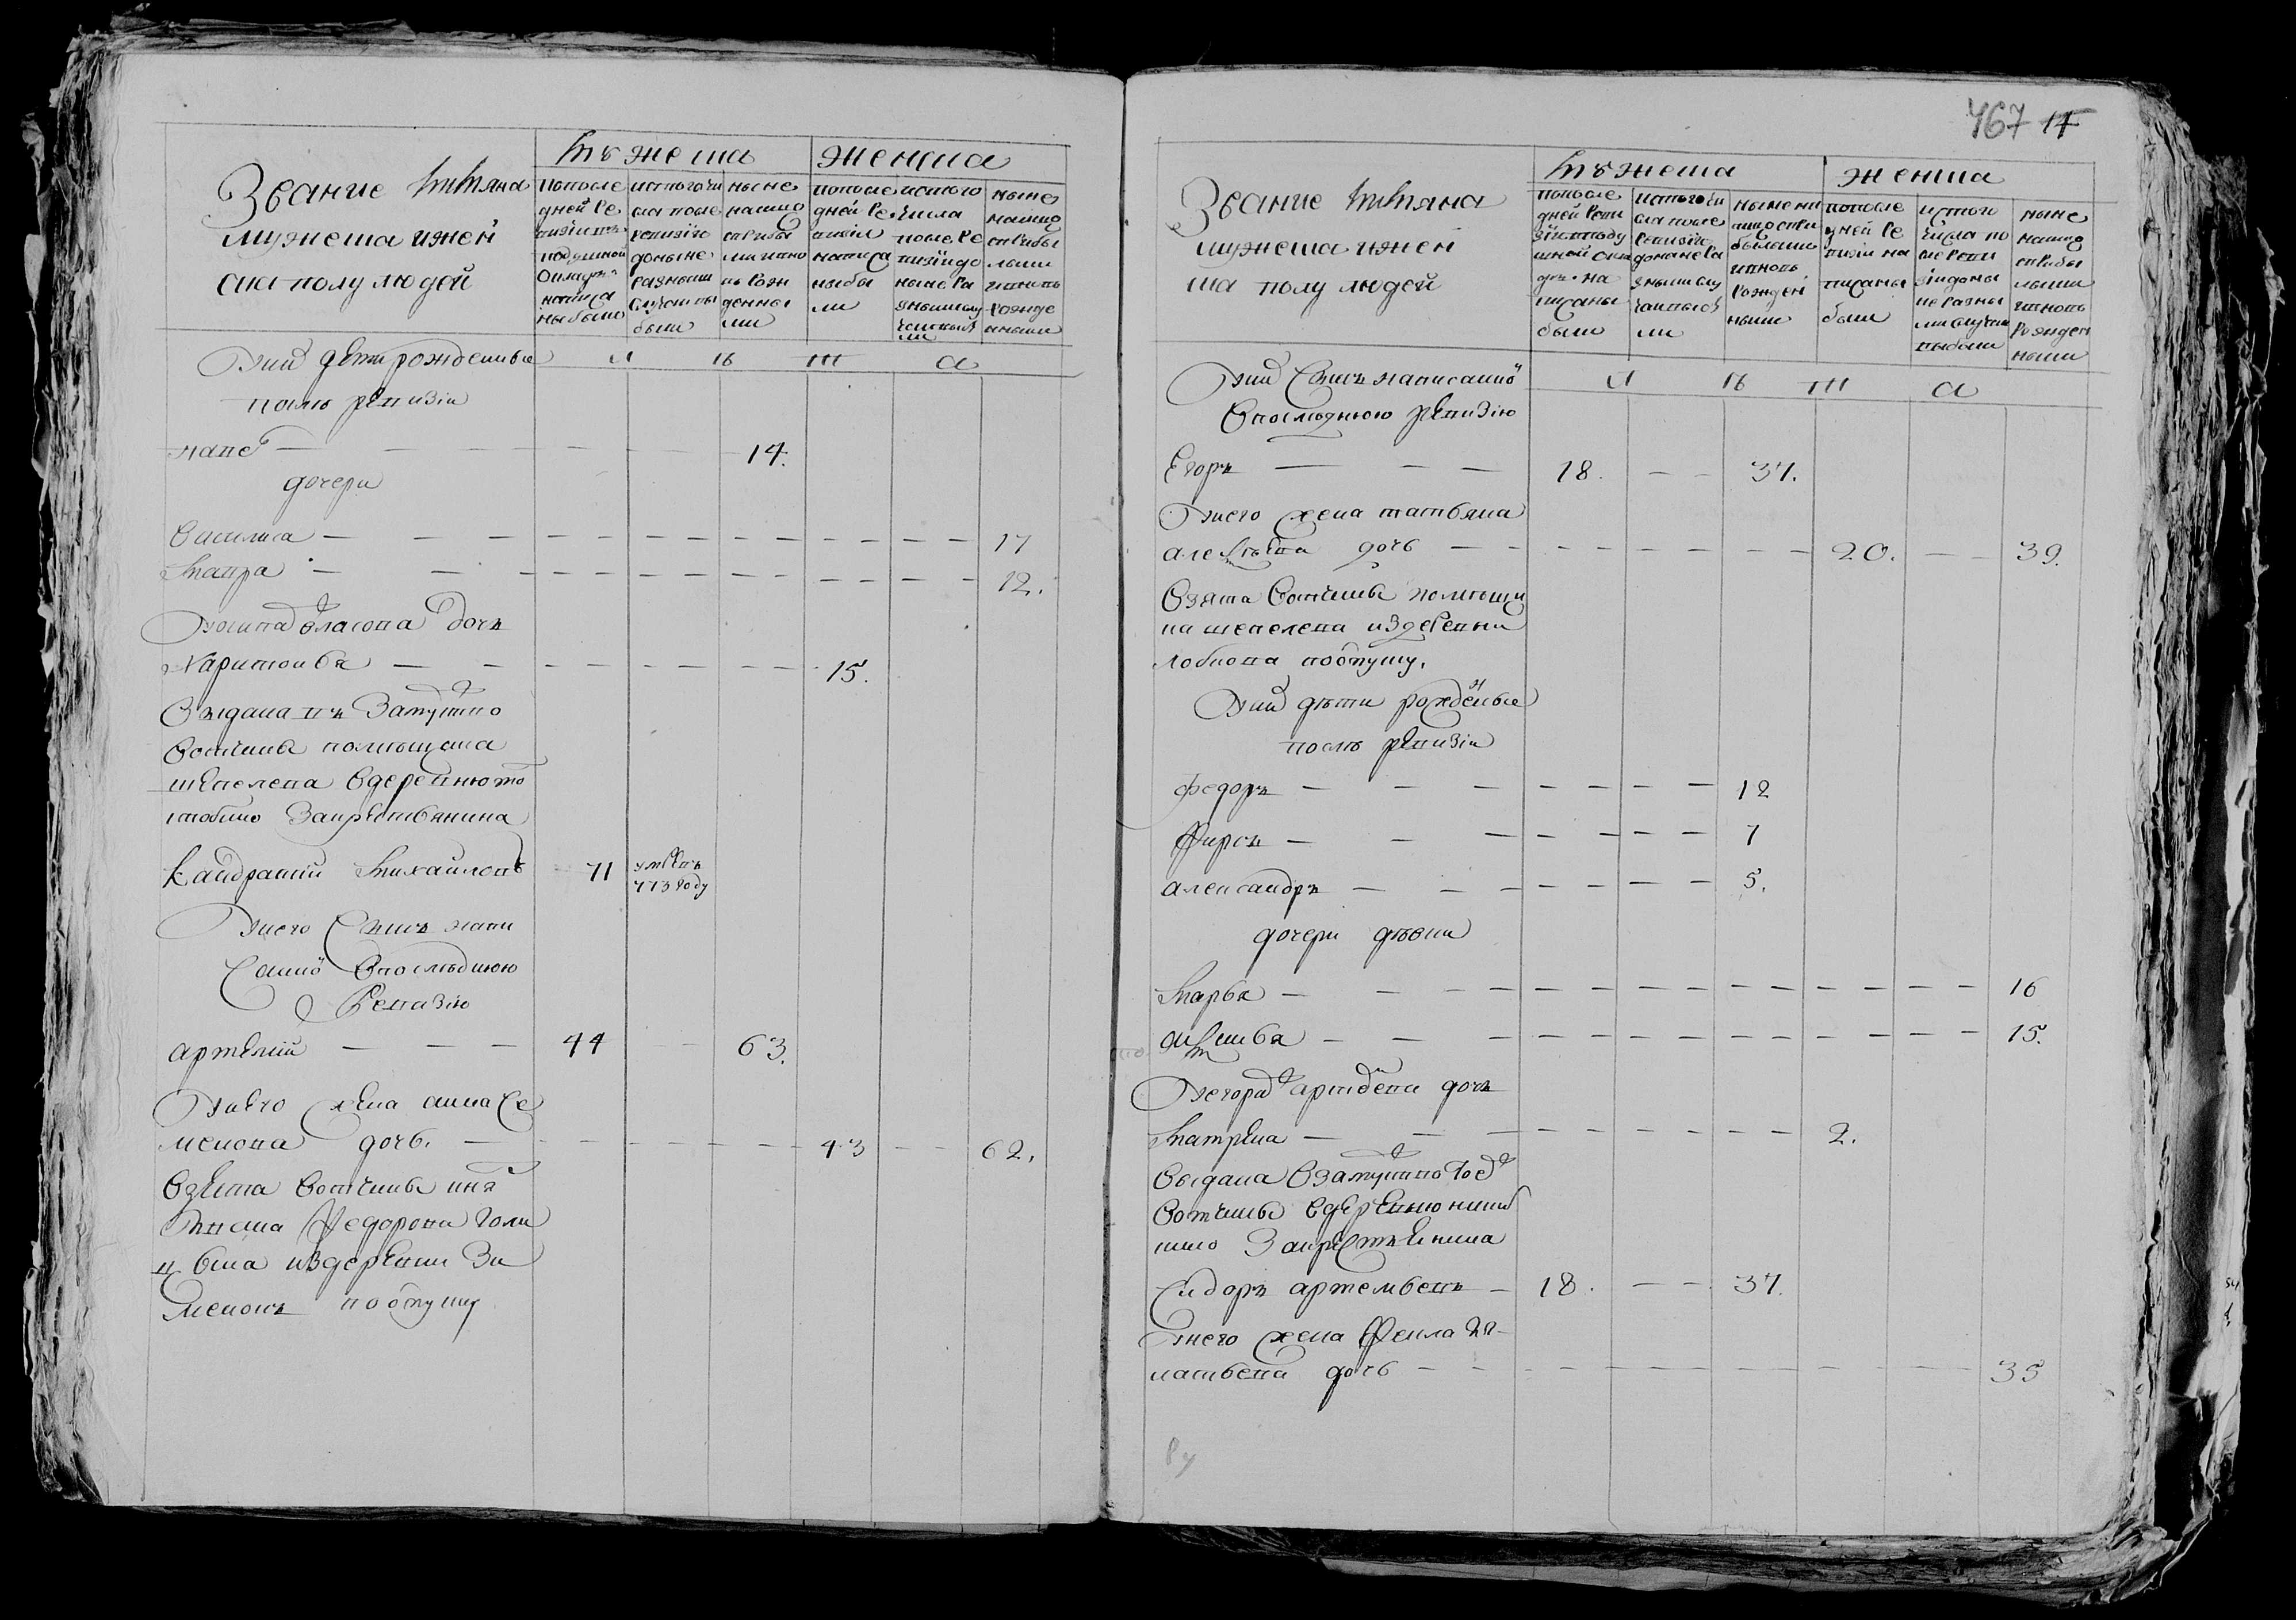 Звание имяна
мужеска и жен
ска полу людей
мужеска
женска
по после
дней ре
визии
подушной
оклад
написа
ны были
ис того чи
сла после
ревизiи
до ныне
разными
случаи вы
были
ныне
на лицо
с прибы
лыми и вно
вь рож
денны
ми
по после
дней ре
визiи
написа
ны бы
ли
ис того
числа
после ре
визiи до
ныне ра
зными слу
чаи выбы
ли
ныне
на лицо
с прибы
лыми
и вновь
рожде
нными
л ѣ т а
У них дети рожденныя
после ревизiи
14.
дочери
Василиса 17
Мавра 12.
у Осипа Власова дочь
Харитонья 15.
Выдана в замуство
вотчины помещика
Шепелева в деревню
за крестьянина
Кандратий Михайловъ 71 умре въ
773 году
У него сынъ напи
санной в последнюю
ревизiю
Артемий 44 63.
У него жена Анна Се
менова дочь. 43 62.
Взята вотчины кня
Федорова Голи
цына из деревни
по отпуску
467 17
Звание имяна
мужеска и жен
ска полу людей
мужеска
женска
по после
дней реви
зiи в поду
шной окла
дъ на
писаны
были
ис того чи
сла после
ревизiи
до ныне ра
зными слу
чаи выбы
ли
ныне на
лицо с при
былыми
и вновь
рожден
ными
по после
дней ре
визiи на
писаны
были
ис того
числа по
сле реви
зiи до ны
не разны
ми случаи
выбыли
ныне
на лицо
с прибы
лыми
и вновь
рожден
ными
л ѣ т а
У них сынъ написанной
в последнюю ревизiю
Егоръ 18. 37.
У него жена Татьяна
дочь 20. 39.
Взята вотчины помещи
ка Шепелева из деревни
по отпуску.
У них дети рожденыя
после ревизiи
Федоръ 12
Фирсъ 7
Александръ 5.
дочери девки
Марья 16
Аксинья 15.
У Егора Артемьева дочь
Матрена 2.
Выдана в замуство той
вотчины в деревню
за крестьянина
Сидоръ Артемьевъ 18. 37.
У него жена Фекла Иг
натьева дочь 35